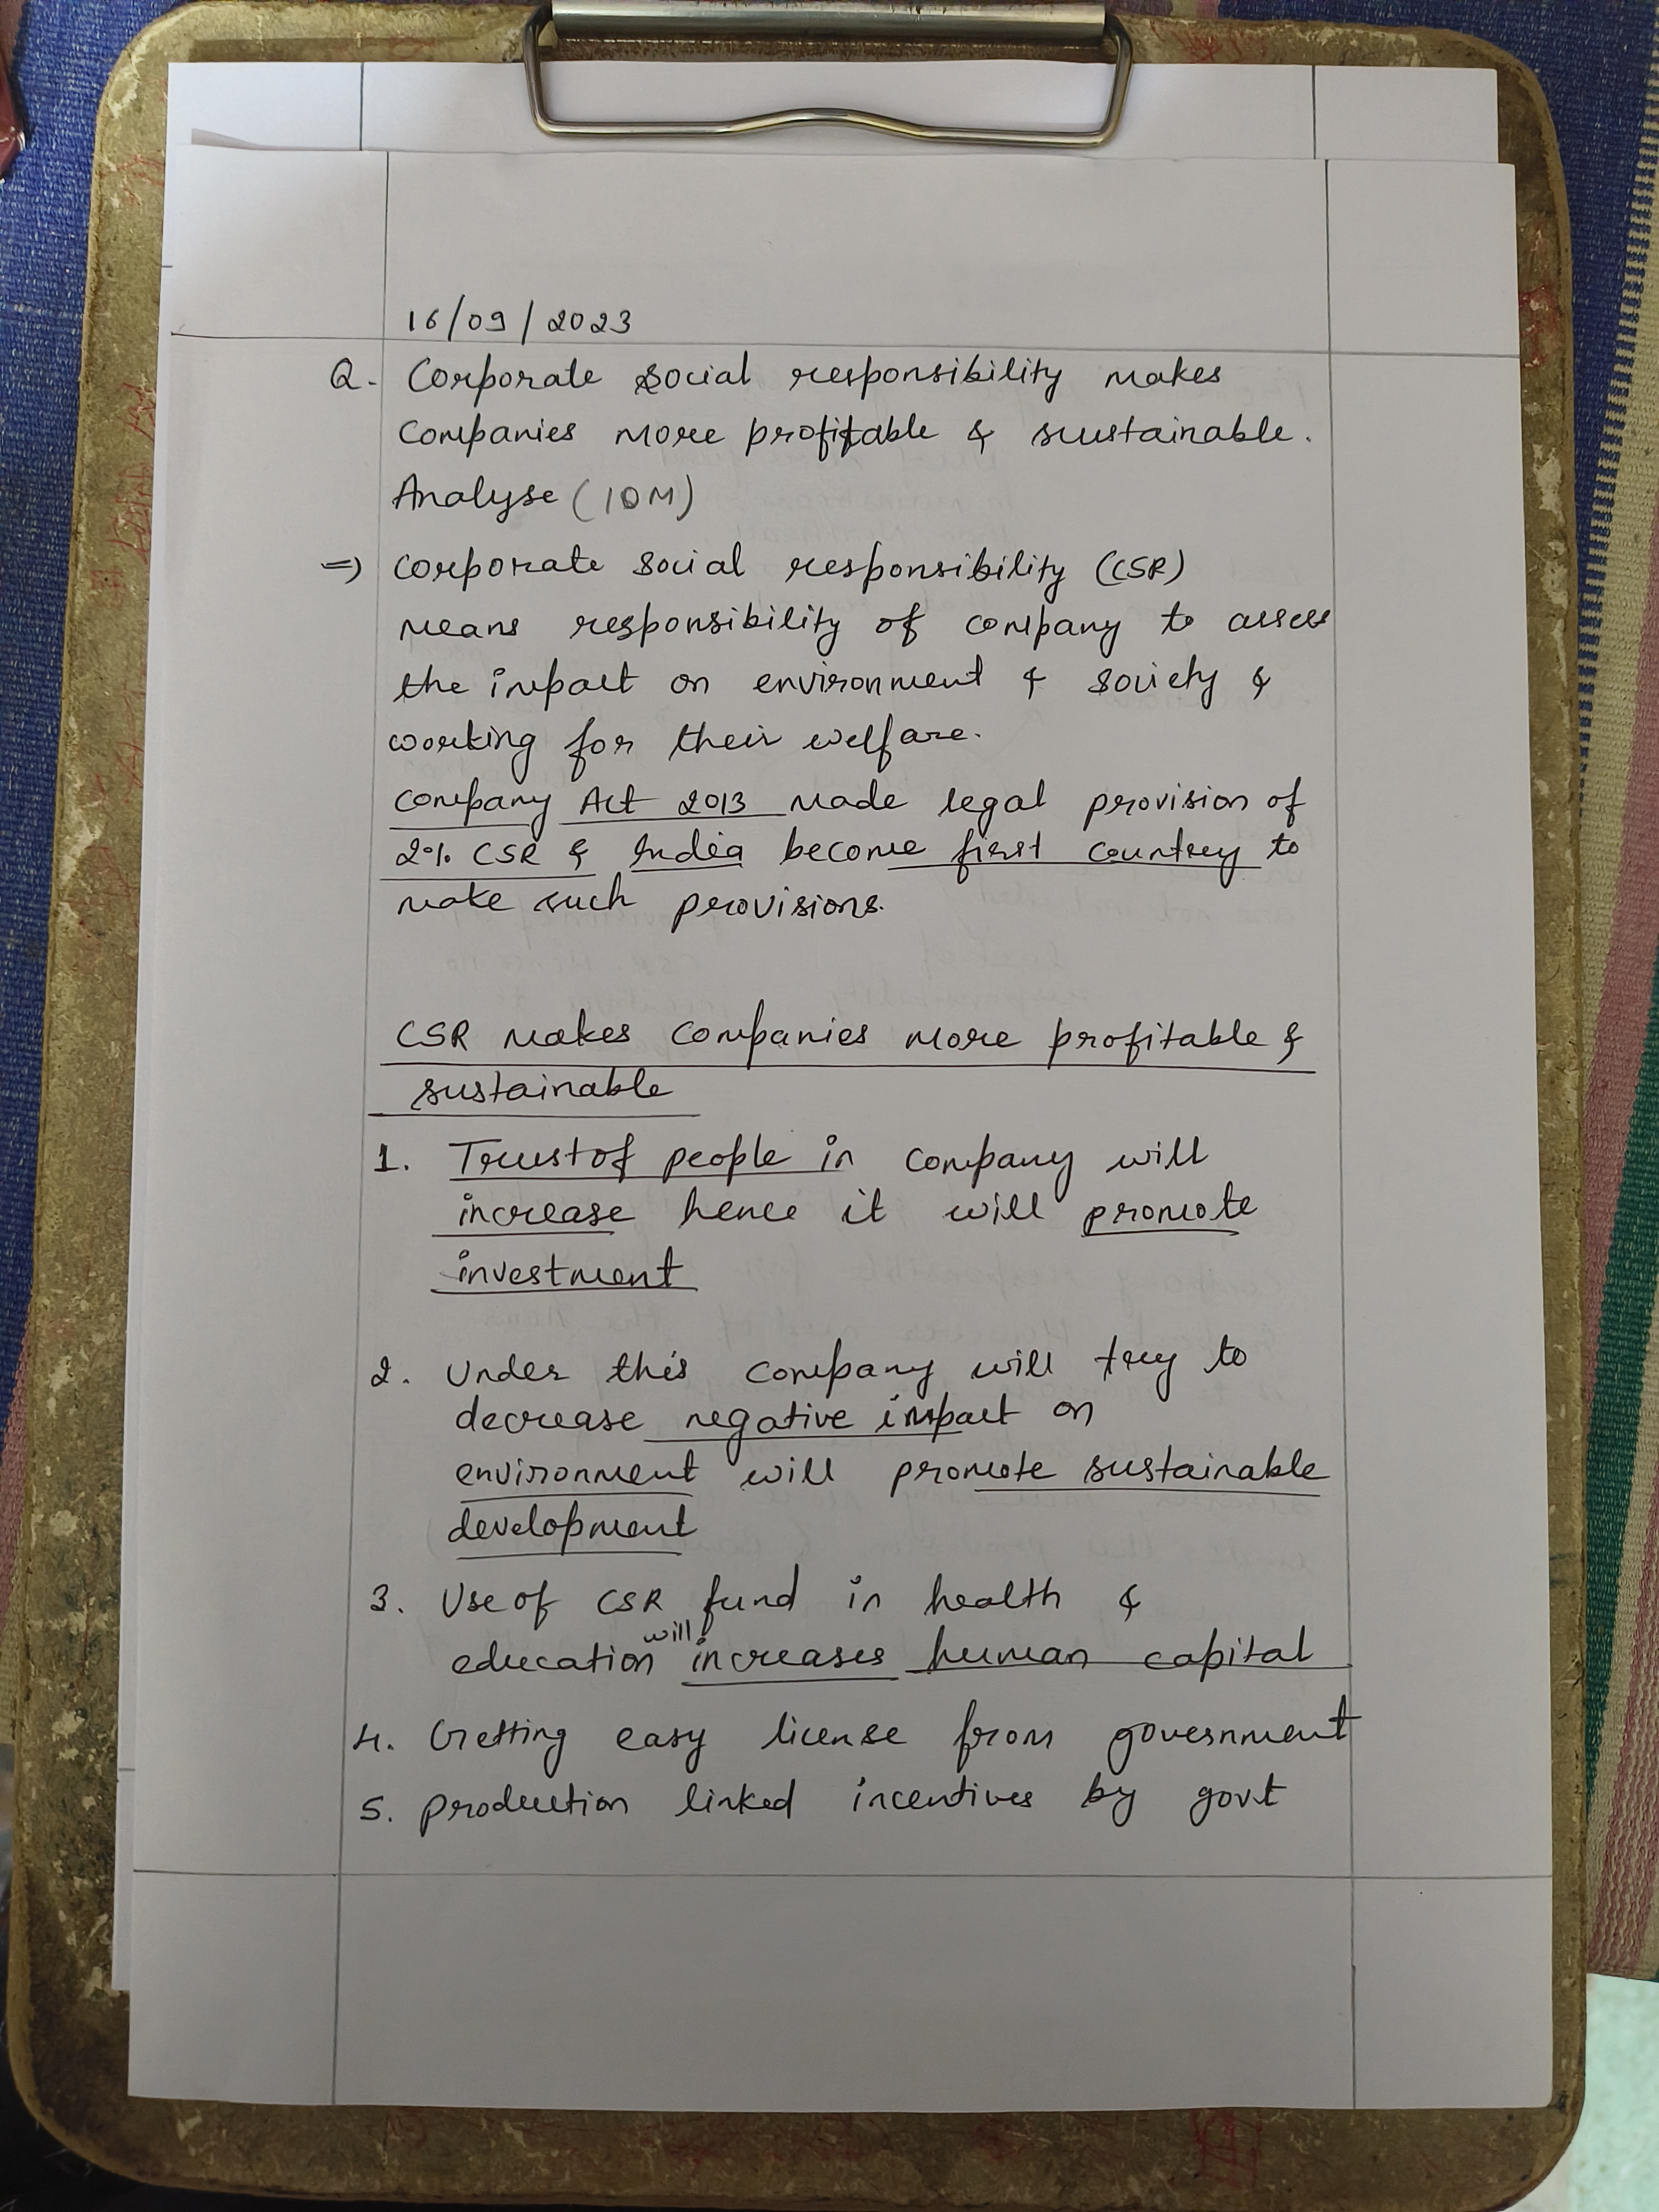 16/09/2023
Q. Corporate social responsibility makes
companies more profitable & sustainable.
Analyse (10M)
=> Corporate social responsibility (CSR)
means responsibility of company to assess
the impact on environment & society &
working for their welfare.
Company Act 2013 made legal provision of
2% CSR & India become first country to
make such provisions.
CSR makes companies more profitable &
sustainable
1. Trust of people in company will
increase hence it will promote
investment
2. Under this company will try to
decrease negative impact on
environment will promote sustainable
development
3. Use of CSR fund in health &
education will increases human capital
4. Getting easy license from government
5. production linked incentives by govt